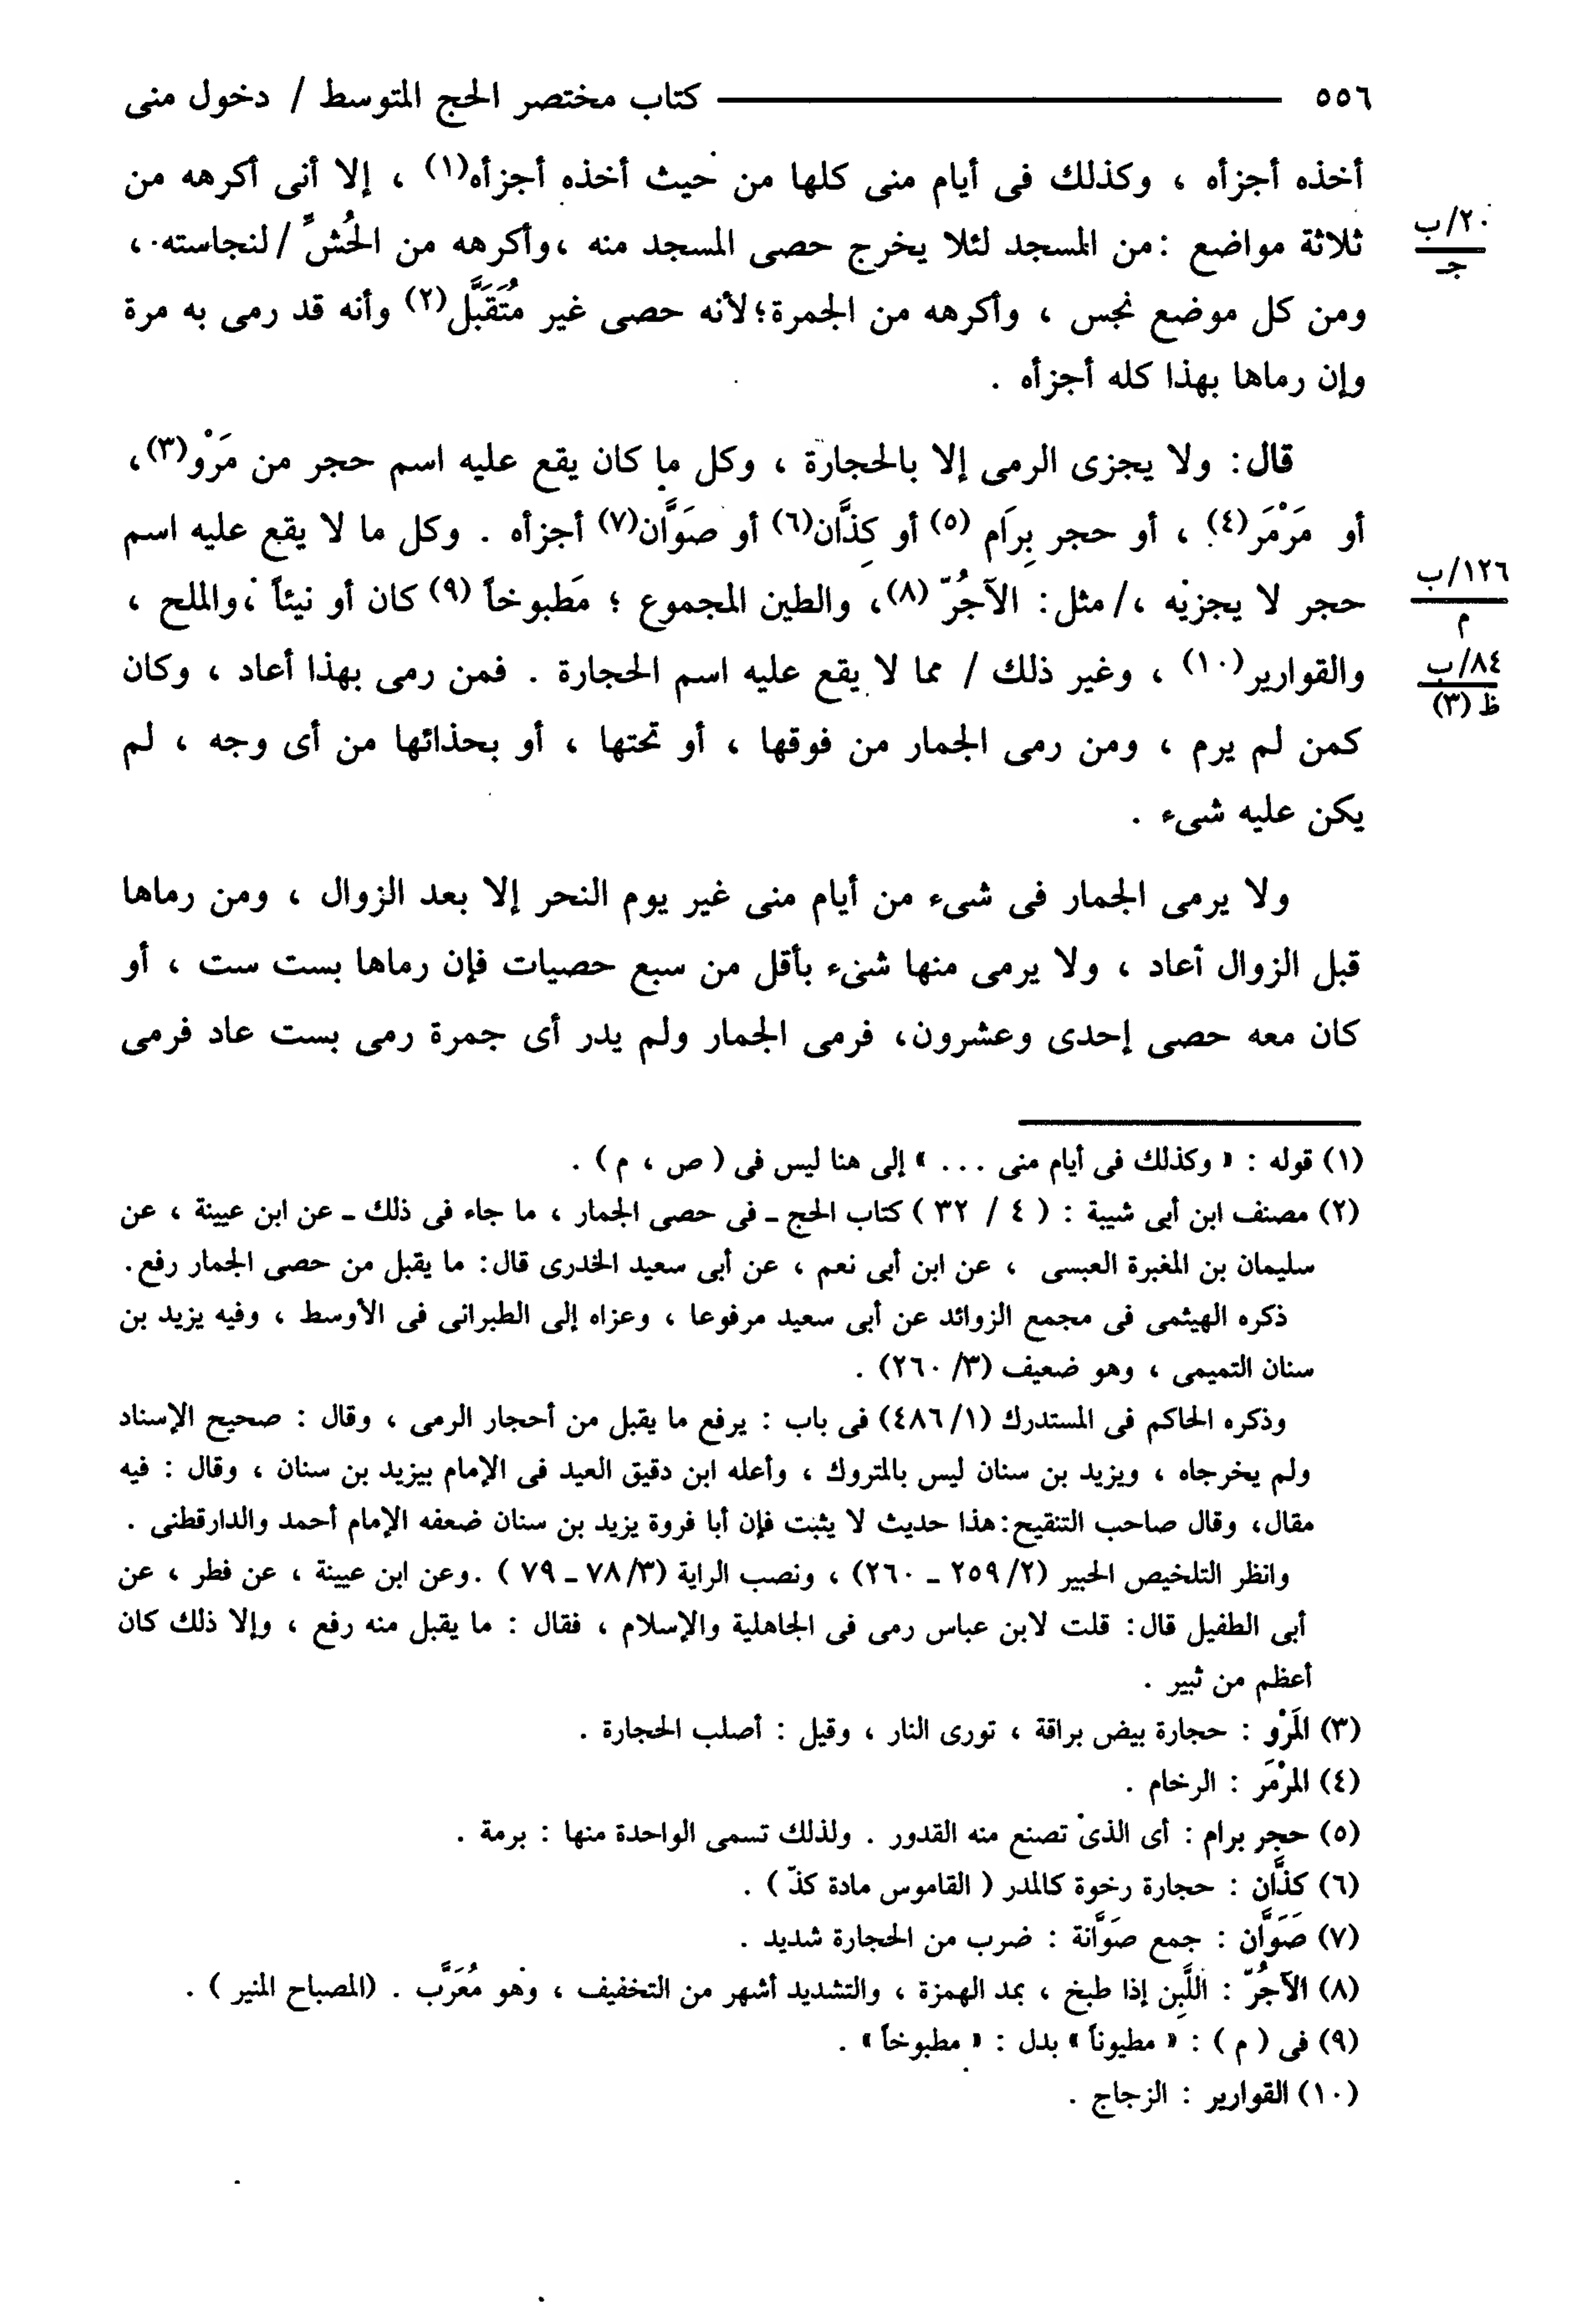 ٥٥٦ ــــــــــــــــــــــ كتاب مختصر الحج المتوسط / دخول منى
أخذه أجزأه ، وكذلك فى أيام منى كلها من حيث أخذه أجزأه(١) ، إلا أنى أكرهه من
ثلاثة مواضع : من المسجد لئلا يخرج حصى المسجد منه ،وأكرهه من الحُشِّ / لنجاسته ،
٢٠/ب
جـ
ومن كل موضع نجس ، وأكرهه من الجمرة؛ لأنه حصى غير مُتَقَبَّل(٢) وأنه قد رمى به مرة
وإن رماها بهذا كله أجزأه .
قال: ولا يجزى الرمى إلا بالحجارة ، وكل ما كان يقع عليه اسم حجر من مَرْو(٣)،
أو مَرْمَر(٤) ، أو حجر بِرَام (٥) أو كِذَّان(٦) أو صَوَّان(٧) أجزأه . وكل ما لا يقع عليه اسم
حجر لا يجزيه ،/ مثل: الآجُرّ (٨)، والطين المجموع ؛ مَطبوخاً (٩) كان أو نيئاً ،والملح ،
١٢٦/ب
م
والقوارير(١٠) ، وغير ذلك / مما لا يقع عليه اسم الحجارة . فمن رمى بهذا أعاد ، وكان
٨٤/ب
ظ (٣)
كمن لم يرم ، ومن رمى الجمار من فوقها ، أو تحتها ، أو بحذائها من أى وجه ، لم
يكن عليه شىء .
ولا يرمى الجمار فى شىء من أيام منى غير يوم النحر إلا بعد الزوال ، ومن رماها
قبل الزوال أعاد ، ولا يرمى منها شىء بأقل من سبع حصيات فإن رماها بست ست ، أو
كان معه حصى إحدى وعشرون، فرمى الجمار ولم يدر أى جمرة رمى بست عاد فرمى
(١) قوله : « وكذلك فى أيام منى ... » إلى هنا ليس فى ( ص ، م ) .
(٢) مصنف ابن أبى شيبة : ( ٤ / ٣٢ ) كتاب الحج ـ فى حصى الجمار ، ما جاء فى ذلك ـ عن ابن عيينة ، عن
سليمان بن المغيرة العبسى ، عن ابن أبى نعم ، عن أبى سعيد الخدرى قال: ما يقبل من حصى الجمار رفع.
ذكره الهيثمى فى مجمع الزوائد عن أبى سعيد مرفوعا ، وعزاه إلى الطبرانى فى الأوسط ، وفيه يزيد بن
سنان التميمى ، وهو ضعيف (٣/ ٢٦٠) .
وذكره الحاكم فى المستدرك (١/ ٤٨٦) فى باب : يرفع ما يقبل من أحجار الرمى ، وقال : صحيح الإسناد
ولم يخرجاه ، ويزيد بن سنان ليس بالمتروك ، وأعله ابن دقيق العيد فى الإمام بيزيد بن سنان ، وقال : فيه
مقال، وقال صاحب التنقيح:هذا حديث لا يثبت فإن أبا فروة يزيد بن سنان ضعفه الإمام أحمد والدارقطنى .
وانظر التلخيص الحبير (٢/ ٢٥٩ ـ ٢٦٠) ، ونصب الراية (٣/ ٧٨ ـ ٧٩ ) .وعن ابن عيينة ، عن فطر ، عن
أبى الطفيل قال: قلت لابن عباس رمى فى الجاهلية والإسلام ، فقال : ما يقبل منه رفع ، وإلا ذلك كان
أعظم من ثبير .
(٣) المَرْو : حجارة بيض براقة ، تورى النار ، وقيل : أصلب الحجارة .
(٤) المرْمَر : الرخام .
(٥) حجر برام : أى الذى تصنع منه القدور . ولذلك تسمى الواحدة منها : برمة .
(٦) كذَّان : حجارة رخوة كالمدر ( القاموس مادة كذّ ) .
(٧) صَوَّان : جمع صَوَّانة : ضرب من الحجارة شديد .
(٨) الآجُرّ : اللَّبِن إذا طبخ ، بمد الهمزة ، والتشديد أشهر من التخفيف ، وهو مُعَرَّب . (المصباح المنير ) .
(٩) فى ( م ) : « مطيوناً » بدل : « مطبوخاً » .
(١٠) القوارير : الزجاج .